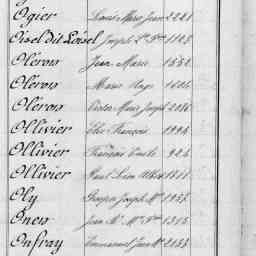 Ogier Louis Marie Jean 2221
Oisel dit Loisel Joseph 1125
Oléron Jean Marie 1552
Oléron Marie Ange 1604
Oléron Victor Marie Joseph 2086
Ollivier Elie François 1994
Ollivier François Emile 924
Ollivier Paul Léon Albert
Oly Joseph 1957
Onen Jean 1315
Onfray Emmanuel Jean 2153